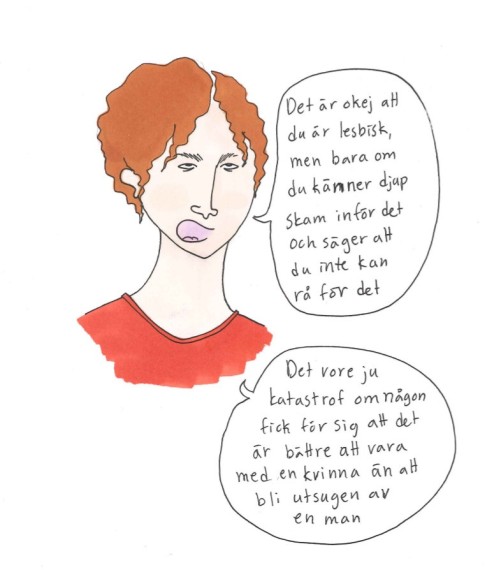 Det är okej att
du är lesbisk,
men bara om
du känner djup
skam inför det
och säger att
du inte kan
rå för det
Det vore ju
katastrof om någon
fick för sig att det
är bättre att vara
med en kvinna än att
bli utsugen av
en man